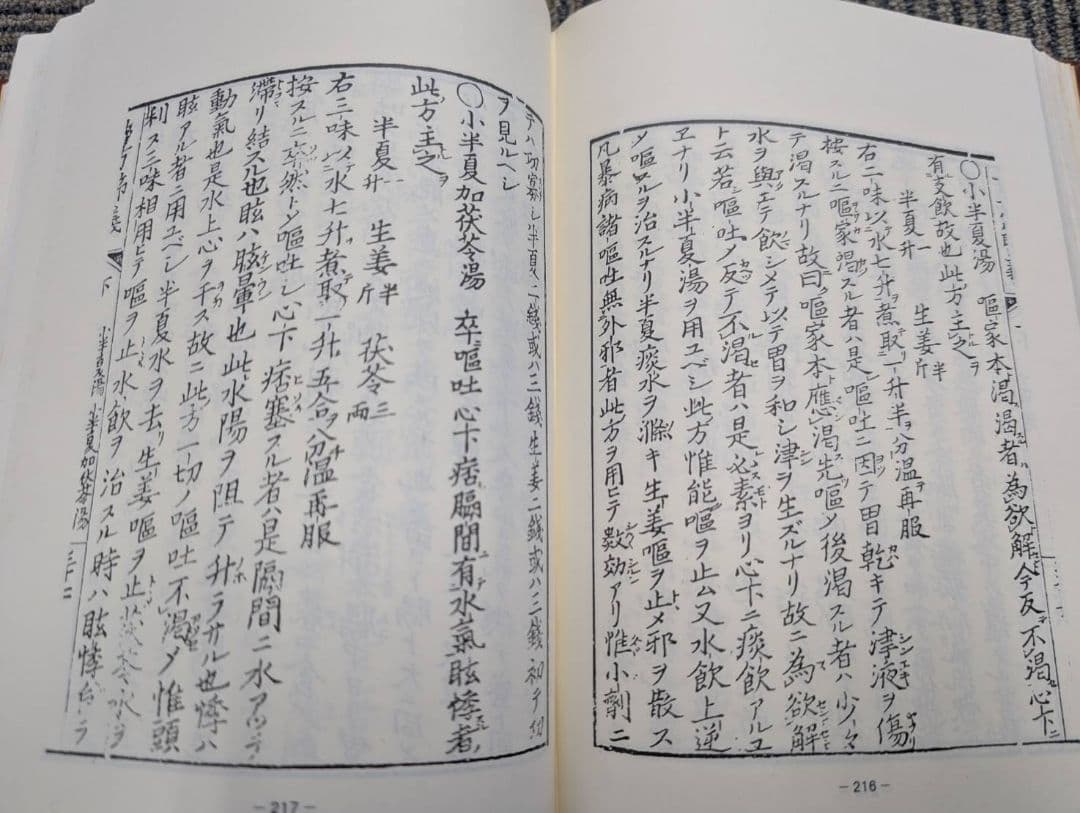 〇小半夏湯　嘔家本渇渇者為欲解今反不渇心下ニ
有支飲故也此方主之ヲ
半夏一升　生姜半斤
右二味以水七升ヲ煮取リ一升半ヲ分温再服
按スルニ嘔家渇スル者ハ是嘔吐ニ因テ胃乾キテ津液ヲ傷
テ渇スルナリ故曰嘔家本應渇先嘔メ後渇スル者ハ少々
水ヲ與エテ飲シメテ以テ胃ヲ和シ津ヲ生ズルナリ故ニ為欲解
ト云若嘔吐メ反テ不渇者ハ是必素ヨリ心下ニ痰飲アルユ
ヱナリ小半夏湯ヲ用ユベシ此方惟能嘔ヲ止ム又水飲上逆
メ嘔スルヲ治スルナリ半夏痰水ヲ滌キ生姜嘔ヲ止メ邪ヲ散ス
凡暴病諸嘔吐無外邪者此方ヲ用ヒテ數効アリ惟小劑ニ
－216－
テハ功寡シ半夏二錢或ハ三錢生姜二錢或ハ三錢初テ切
ヲ見ルヘシ
〇小半夏加茯苓湯　卒嘔吐心下痞膈間有水氣眩悸者
此方主之ヲ
半夏一升　生姜半斤　茯苓三兩
右三味以テ水七升煮取一升五合ヲ分温再服
按スルニ卒然トメ嘔吐シ心下痞塞スル者ハ是膈間ニ水アツテ
滯リ結スル也眩ハ眩暈也此水陽ヲ阻テ升ラサル也悸ハ
動氣也是水上心ヲ干ス故ニ此方一切ノ嘔吐不渇メ惟頭
眩アル者ニ用ユベシ半夏水ヲ去リ生姜嘔ヲ止茯苓水ヲ
利ス三味相用ヒテ嘔ヲ止水飲ヲ治スル時ハ眩悸自ラ
下　小半夏湯　半夏加茯苓湯
－217－